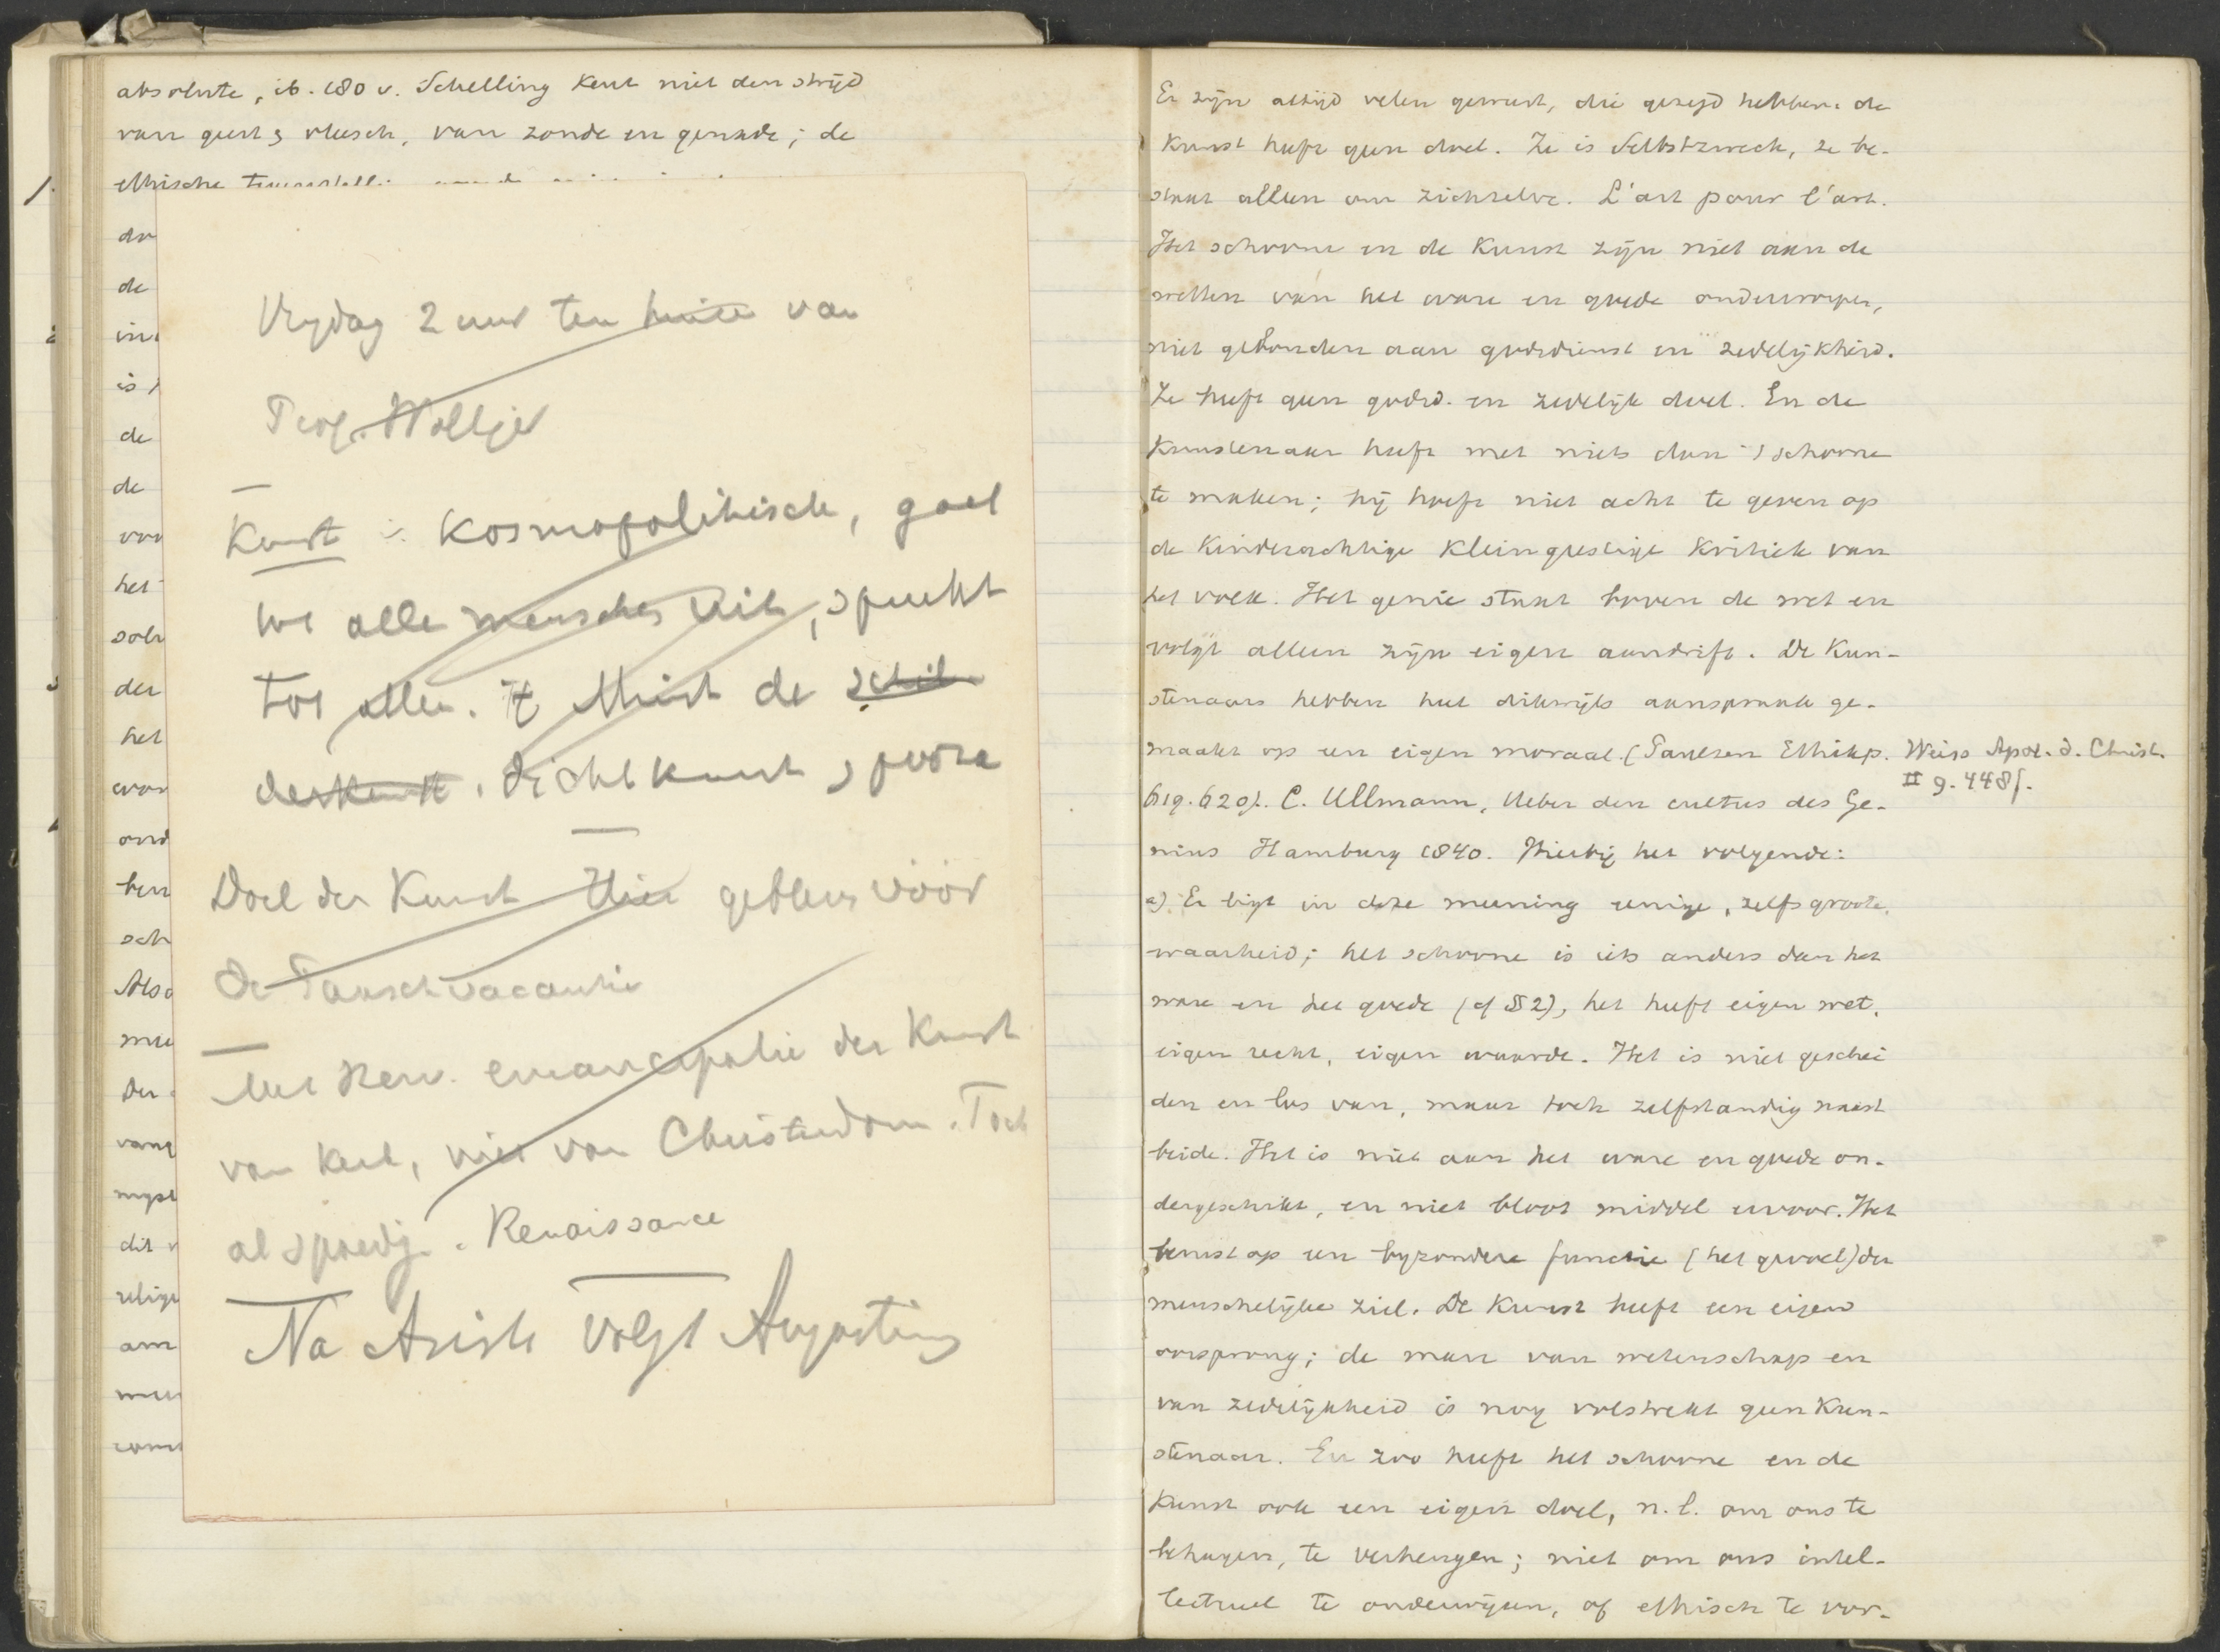 absolute, ib. 180 v. Schelling kent niet den strijd
van geest & vleesch, van zonde en genade; de
ethische
de
in
is
de
de
het
der
het
Als
der
dit
am
Vrydag 2 uur ten huize van
Prof. Woltjer
Kunst is kosmopolitisch, gaat
tot alle menschen uit, spreekt
tot allen. 't Minst de schil
derkunst. dichtkunst, poëzie
Doel der Kunst Hier gebleven vóór
de Paaschvacantie
Met Herv. emancipatie der Kunst
van Kerk, niet van Christendom. Toch
al spoedig. Renaissance
Na Arist volgt Augustinus
Er zijn altijd velen geweest, die gezegd hebben: de
Kunst heeft geen doel. Ze is Selbstzweck, ze be-
staat alleen om zichzelve. L'art pour l'art.
Het schoone en de Kunst zijn niet aan de
wetten van het ware en goede onderworpen,
niet gebonden aan godsdienst en zedelijkheid.
Ze heeft geen godsd. en zedelijk doel. En de
Kunstenaar heeft met niets dan 't schoone
te maken; hij hoeft niet acht te geven op
de kinderachtige kleingeestige kritiek van
het volk. Het genie staat boven de wet en
volgt alleen zijn eigen aandrift. De Kun-
stenaars hebben heel dikwijls aanspraak ge-
maakt op een eigen moraal. (Paulsen Ethik p.
619. 620). C. Ullmann, Ueber den cultus des Ge-
nius Hamburg 1840. Hierbij het volgende:
Weiss Apol. d. Christ.
II 9. 448f.
a) Er ligt in deze meening eenige, zelfs groote
waarheid; het schoone is iets anders dan het
ware en het goede (cf §2), het heeft eigen wet,
eigen recht, eigen waarde. Het is niet geschei
den en los van, maar toch zelfstandig naast
beide. Het is niet aan het ware en goede on-
dergeschikt, en niet bloot middel ervoor. Het
berust op een byzondere functie (het gevoel) der
menschelijke ziel. De Kunst heeft een eigen
oorsprong; de man van wetenschap en
van zedelijkheid is nog volstrekt geen Kun-
stenaar. En zoo heeft het schoone en de
Kunst ook een eigen doel, n.l. om ons te
behagen, te verheugen; niet om ons intel-
lectueel te onderwijzen, of ethisch te vor-